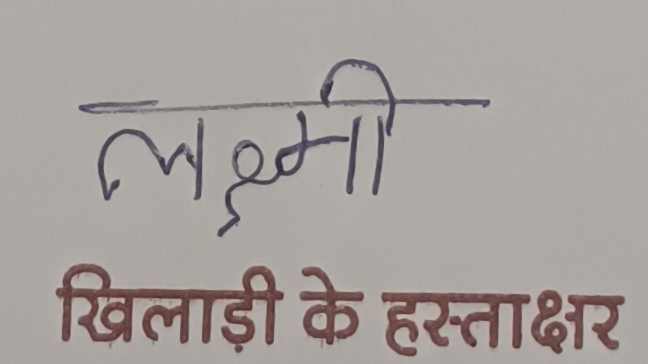 लक्ष्मी
खिलाड़ी के हस्ताक्षर